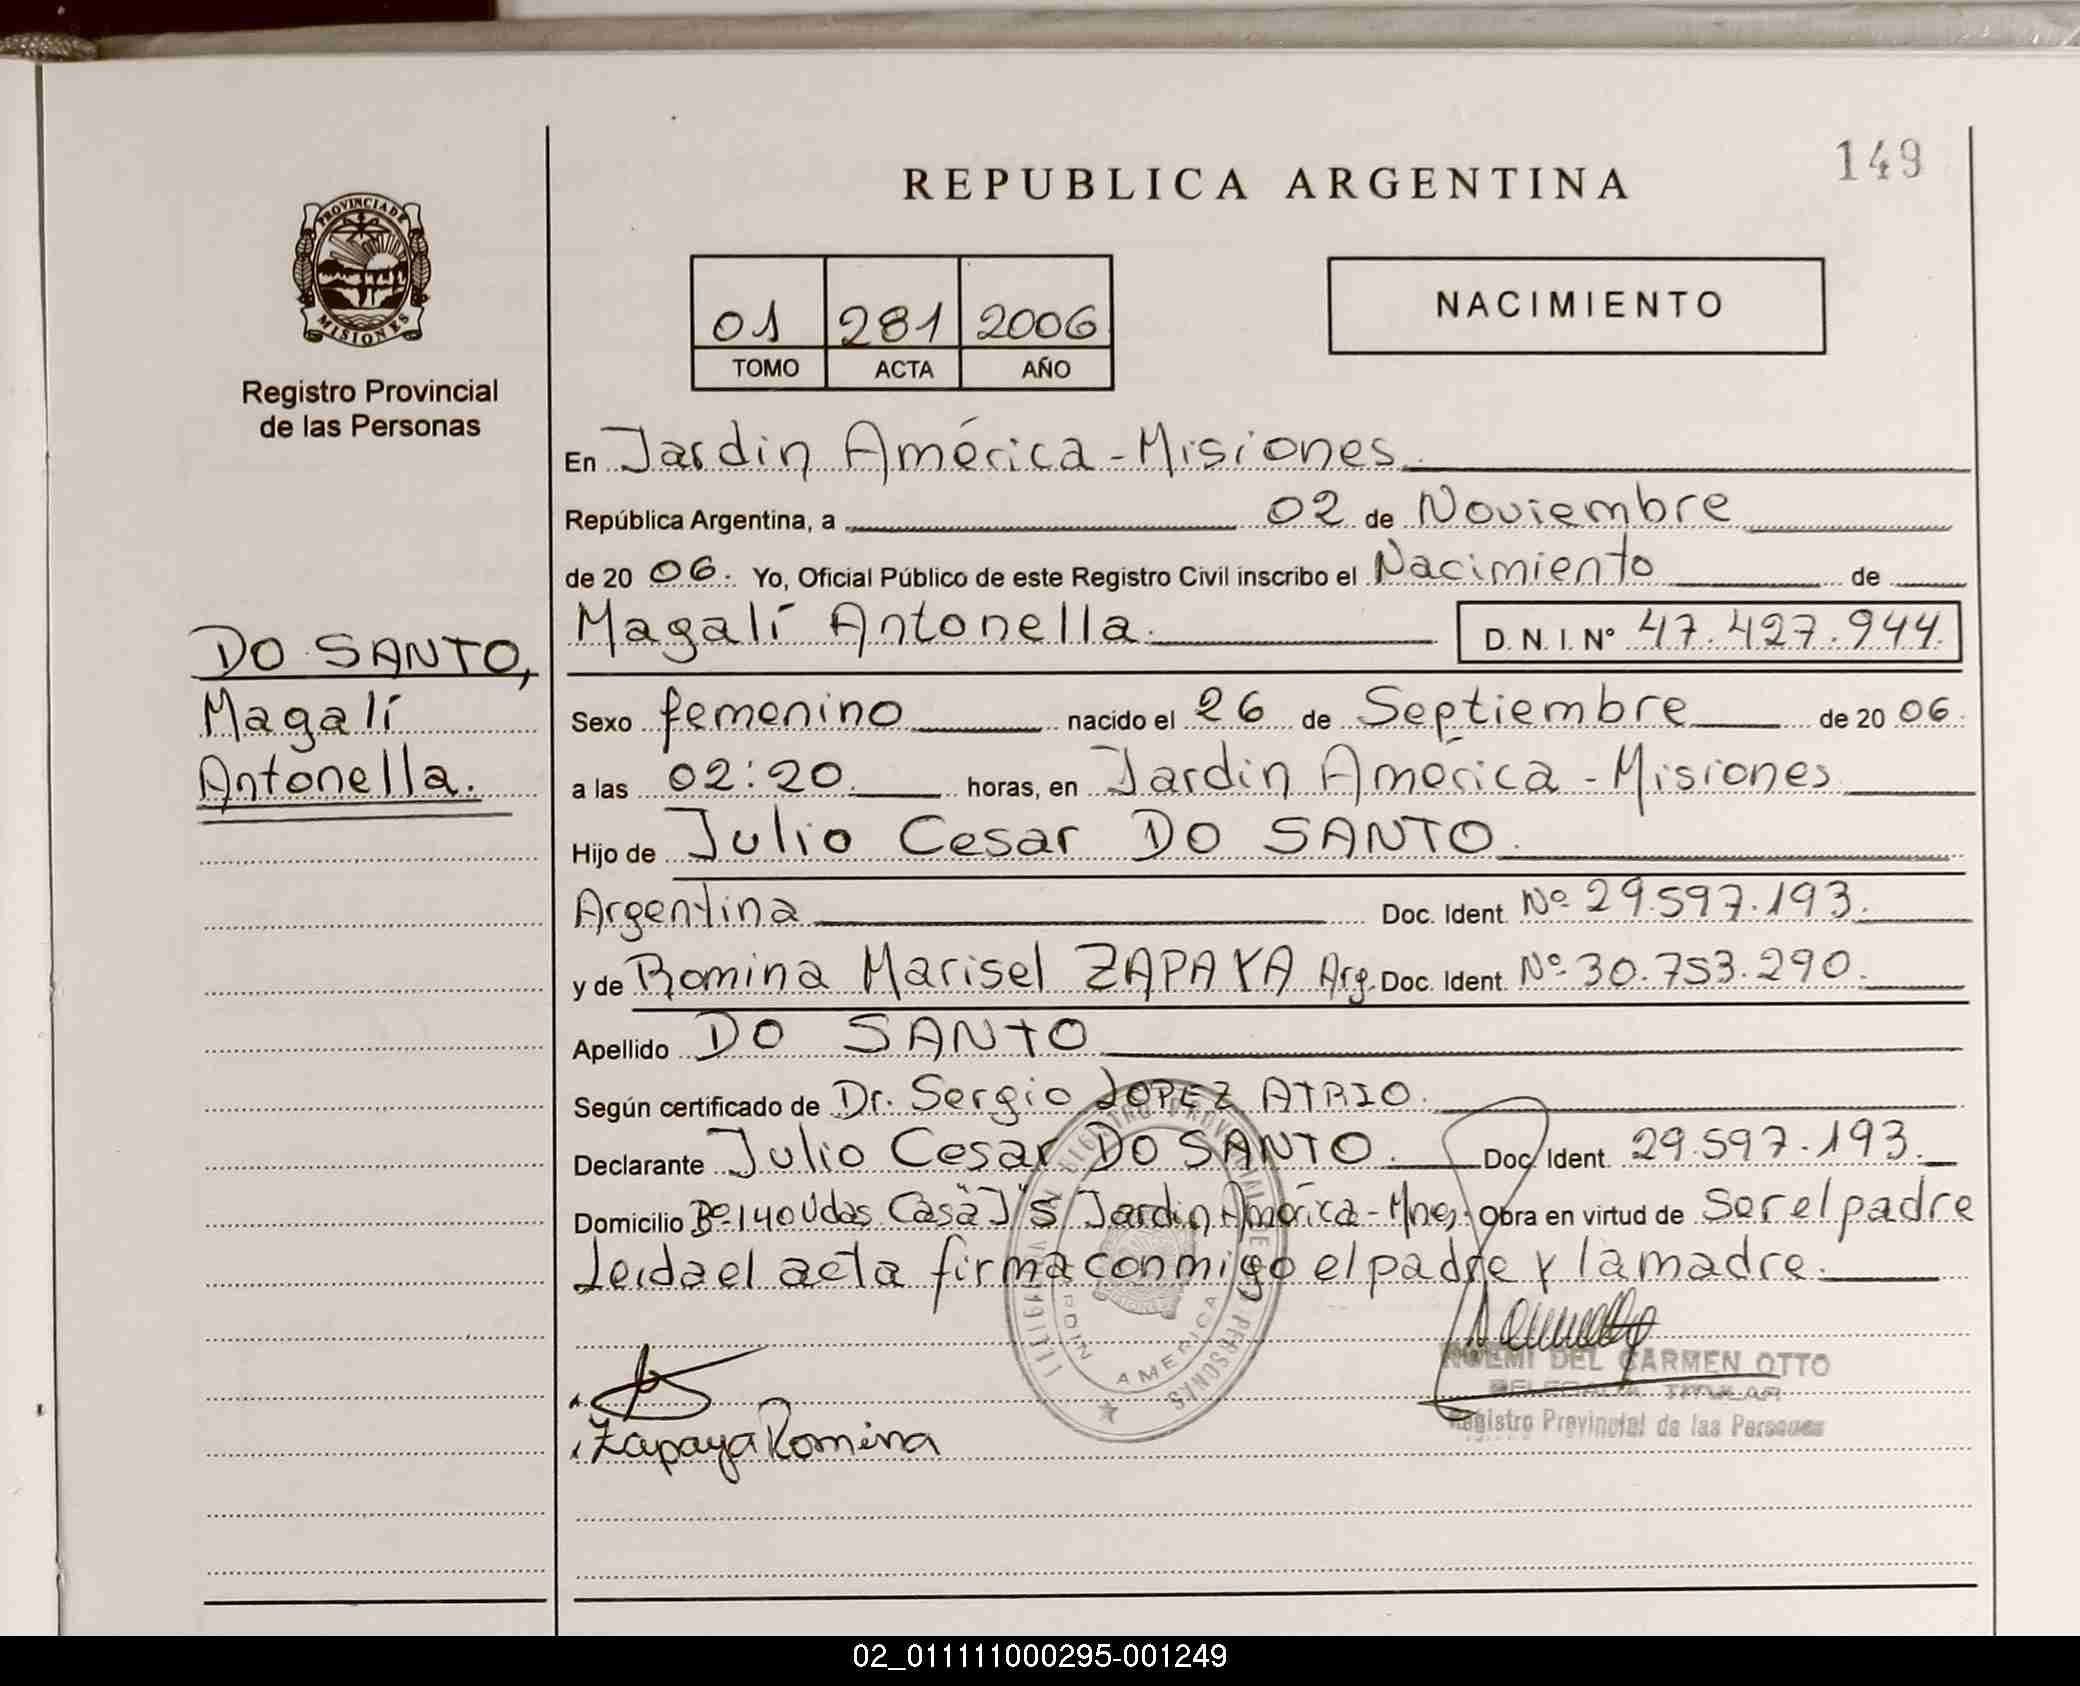 149
REPUBLICA ARGENTINA
PROVINCIA DE
MISIONES
Registro Provincial
de las Personas
01 281 2006
TOMO ACTA AÑO
NACIMIENTO
En Jardin América - Misiones
República Argentina, a 02 de Noviembre
de 20 06. Yo, Oficial Público de este Registro Civil inscribo el Nacimiento de
Magalí Antonella. D. N. I. Nº 47.427.944
DO SANTO,
Magalí
Antonella.
Sexo femenino nacido el 26 de Septiembre de 20 06.
a las 02:20. horas, en Jardin América - Misiones
Hijo de Julio Cesar DO SANTO.
Argentina Doc. Ident. Nº 29.597.193.
y de Romina Marisel ZAPAYA Arg. Doc. Ident. Nº 30.753.290.
Apellido DO SANTO
Según certificado de Dr. Sergio LOPEZ ATRIO.
Declarante Julio Cesar DO SANTO. Doc. Ident. 29.597.193.
Domicilio Bº 140 Vdas. Casa "J" 5 Jardin América - Mnes. Obra en virtud de Ser el padre
Leida el acta firma conmigo el padre y la madre.
AMERICA
NOEMI DEL CARMEN OTTO
DELEGADA TITULAR
Registro Provincial de las Personas
Zapaya Romina
02_011111000295-001249